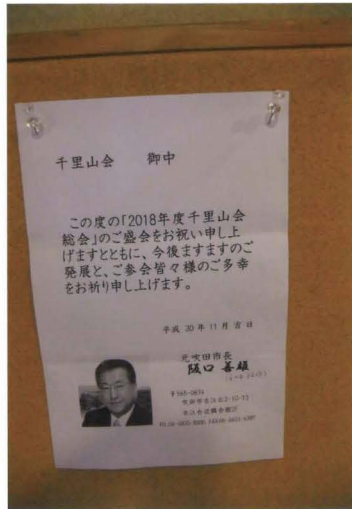 千里山会　御中
この度の「2018年度千里山会
総会」のご盛会をお祝い申し上
げますとともに、今後ますますのご
発展と、ご参会皆々様のご多幸
をお祈り申し上げます。
平成 30 年 11 月 吉 日
元吹田市長
阪口 善雄